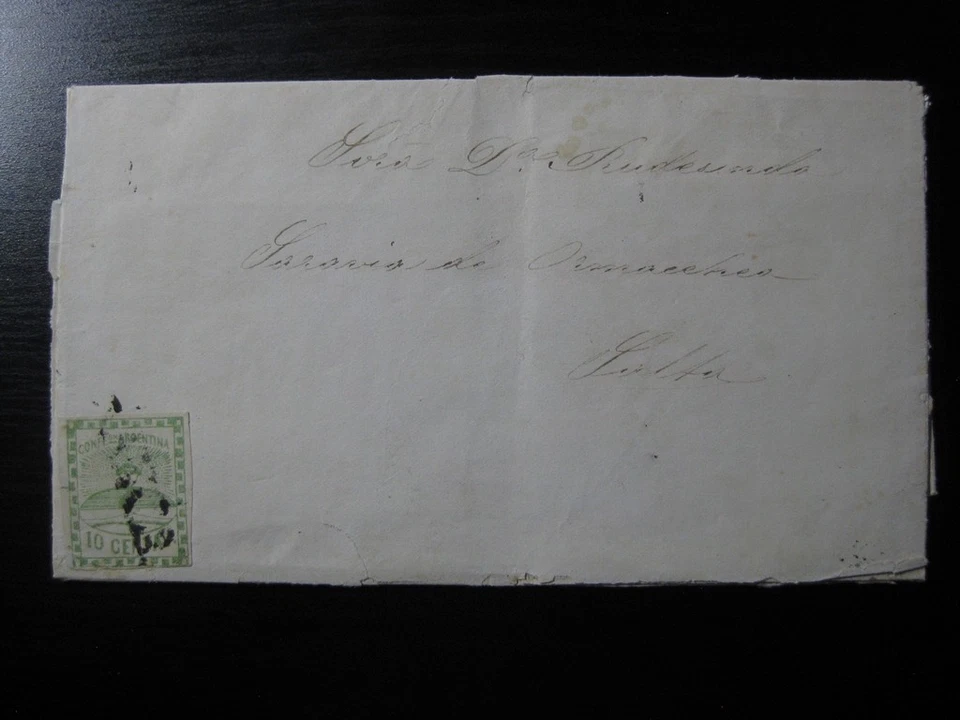 Sora Da. Rudesinda
Saravia de Ormaechea
Salta
CONFON ARGENTINA
10 CENTS